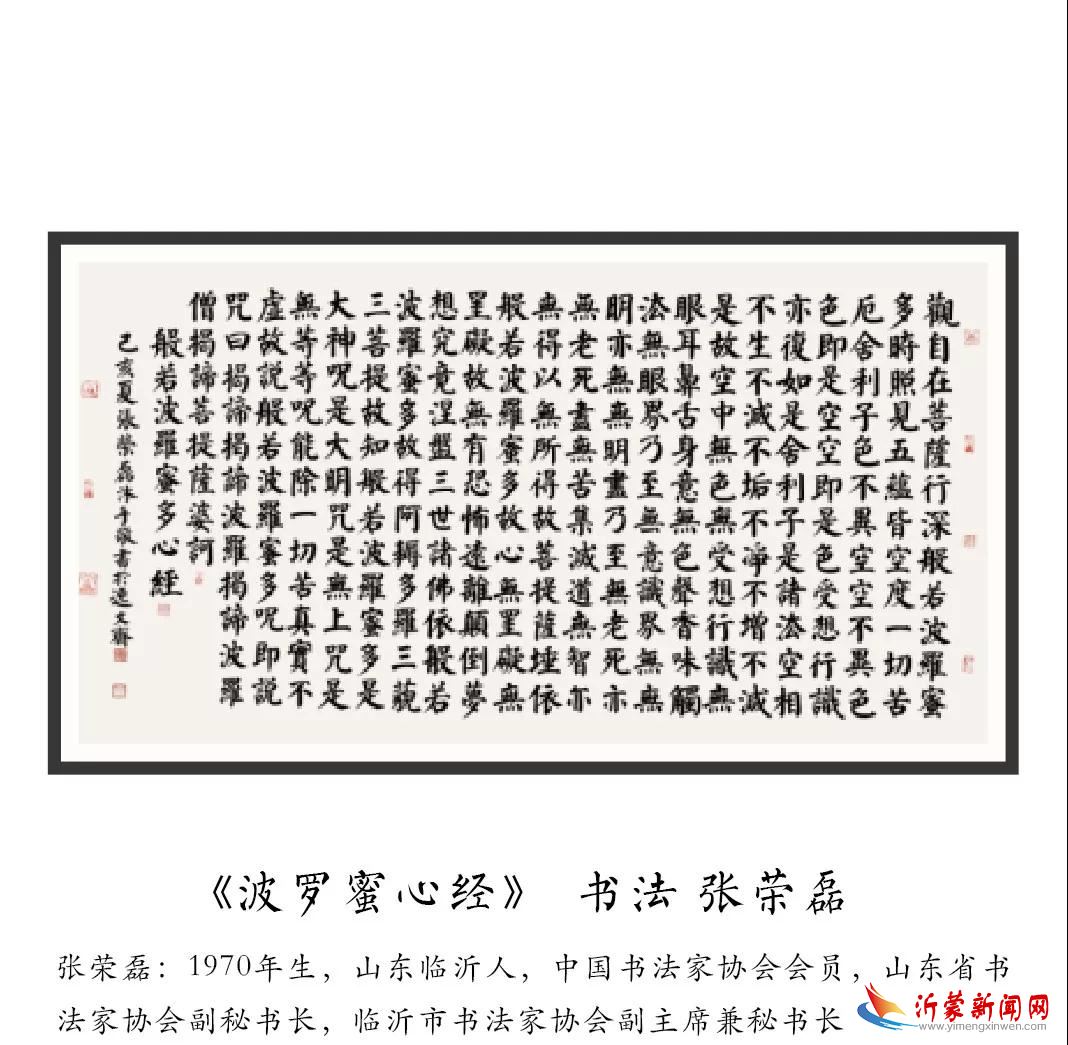 觀自在菩薩行深般若波羅蜜
多時照見五蘊皆空度一切苦
厄舍利子色不異空空不異色
色即是空空即是色受想行識
亦復如是舍利子是諸法空相
不生不滅不垢不淨不增不減
是故空中無色無受想行識無
眼耳鼻舌身意無色聲香味觸
法無眼界乃至無意識界無無
明亦無無明盡乃至無老死亦
無老死盡無苦集滅道無智亦
無得以無所得故菩提薩埵依
般若波羅蜜多故心無罣礙無
罣礙故無有恐怖遠離顛倒夢
想究竟涅盤三世諸佛依般若
波羅蜜多故得阿耨多羅三藐
三菩提故知般若波羅蜜多是
大神咒是大明咒是無上咒是
無等等呪能除一切苦真實不
虛故説般若波羅蜜多呪即說
咒曰揭諦揭諦波羅揭諦波羅
僧揭諦菩提薩婆訶
般若波羅蜜多心經
己亥夏張榮磊沐手敬書於逸文齋
《波罗蜜心经》 书法 张荣磊
张荣磊：1970年生，山东临沂人，中国书法家协会会员，山东省书
法家协会副秘书长，临沂市书法家协会副主席兼秘书长
沂蒙新闻网
www.yimengxinwen.com